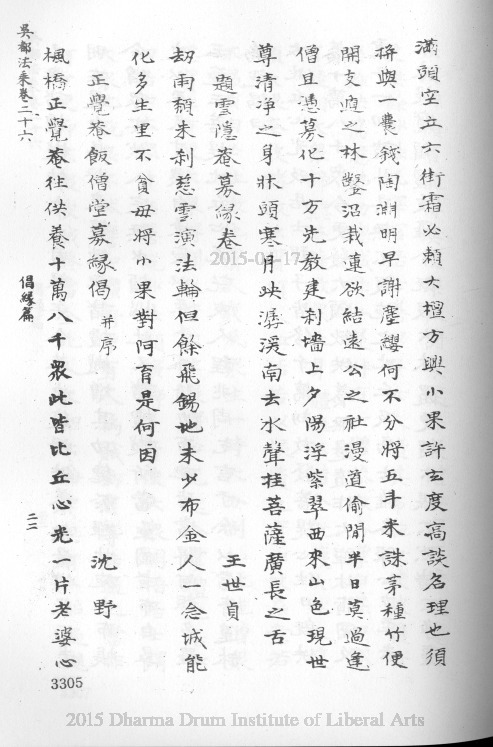 滿頭空立六街霜必賴大檀方興小果許玄度高談名理也須
拚與一囊錢陶淵明早謝塵纓何不分將五斗米誅茅種竹便
開支遁之林鑿沼栽蓮欲結遠公之社漫道偷閒半日莫過逢
僧且憑募化十方先教建剎墻上夕陽浮紫翠西來山色現世
尊清淨之身牀頭寒月映潺湲南去水聲桂菩薩廣長之舌
題雲隱菴募緣卷
王世貞
劫雨頹未剎慈雲演法輪但餘飛錫地未少布金人一念城能
化多生里不貧毋將小果對阿育是何因
正覺菴飯僧堂募緣偈 并序
沈野
楓橋正覺菴往供養十萬八千眾此皆比丘心光一片老婆心
吳都法乘卷二十六
倡緣篇
二二
3305
2015-03-17
2015 Dharma Drum Institute of Liberal Arts